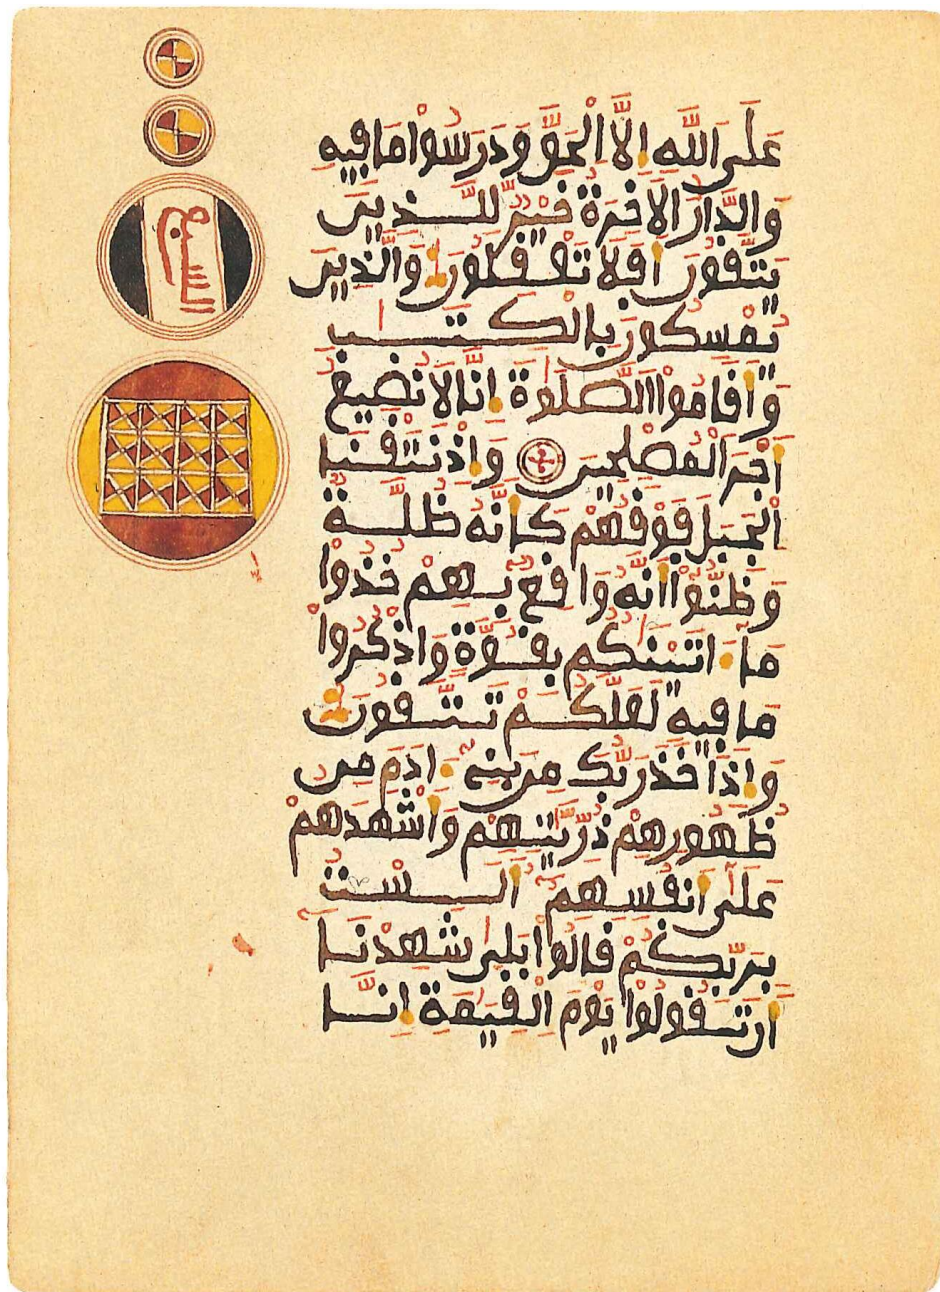 عَلَى اللَّهِ إِلَّا الْحَقَّ وَدَرَسُوا مَا فِيهِ
وَالدَّارُ الْأَخِرَةُ خَيْرٌ لِّلَّذِينَ
يَتَّقُونَ أَفَلَا تَعْقِلُونَ وَالَّذِينَ
يُمَسِّكُونَ بِالْكِتَٰبِ
وَأَقَامُوا الصَّلَوٰةَ إِنَّا لَا نُضِيعُ
أَجْرَ الْمُصْلِحِينَ وَإِذْ نَتَقْنَا
الْجَبَلَ فَوْقَهُمْ كَأَنَّهُ ظُلَّةٌ
وَظَنُّوا أَنَّهُ وَاقِعٌ بِهِمْ خُذُوا
مَا ءَاتَيْنَٰكُم بِقُوَّةٍ وَاذْكُرُوا
مَا فِيهِ لَعَلَّكُمْ تَتَّقُونَ
وَإِذْ أَخَذَ رَبُّكَ مِن بَنِي ءَادَمَ مِن
ظُهُورِهِمْ ذُرِّيَّٰتِهِمْ وَأَشْهَدَهُمْ
عَلَى أَنفُسِهِمْ أَلَسْتُ
بِرَبِّكُمْ قَالُوا بَلَى شَهِدْنَا
أَن تَقُولُوا يَوْمَ الْقِيَٰمَةِ إِنَّا